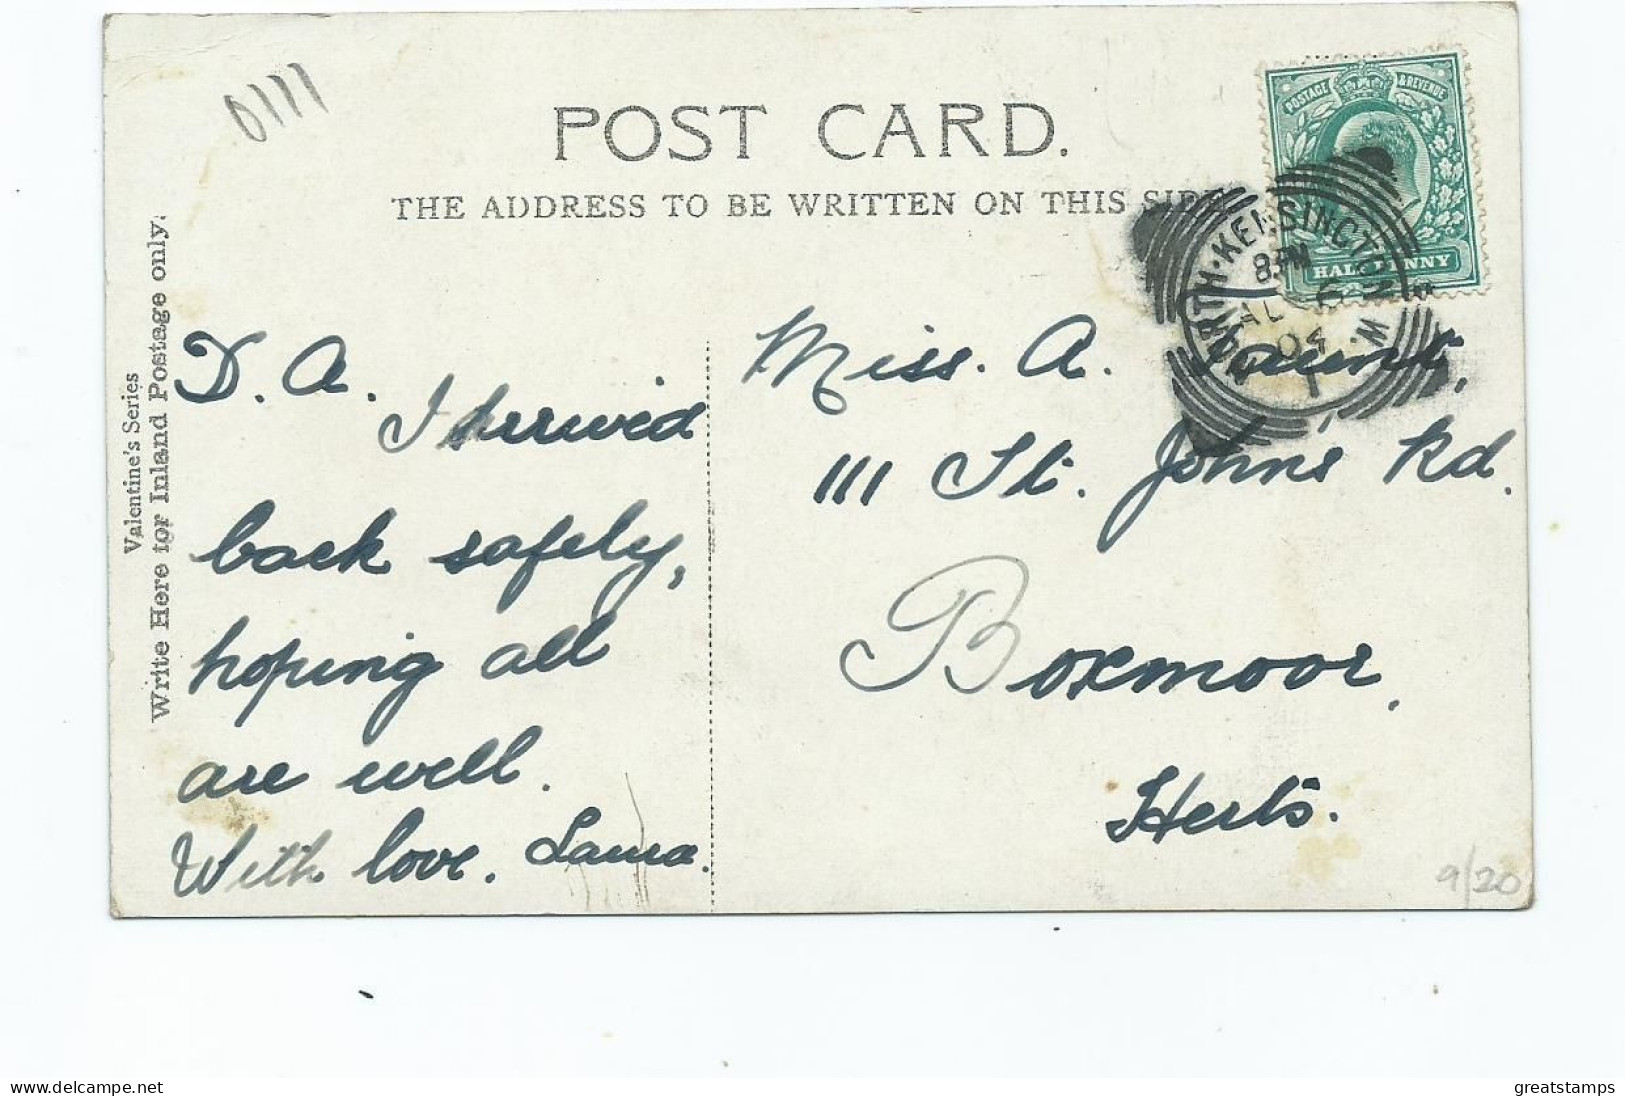 0111
POST CARD.
THE ADDRESS TO BE WRITTEN ON THIS SIDE
POSTAGE & REVENUE
HALFPENNY
NORTH·KENSINGTON W.
8 PM
04
1
Valentine's Series
Write Here for Inland Postage only.
D. A.
I arrived
back safely,
hoping all
are well.
With love. Laura.
Miss. A.
111 St. John's Rd.
Boxmoor,
Herts.
9/20
www.delcampe.net
greatstamps